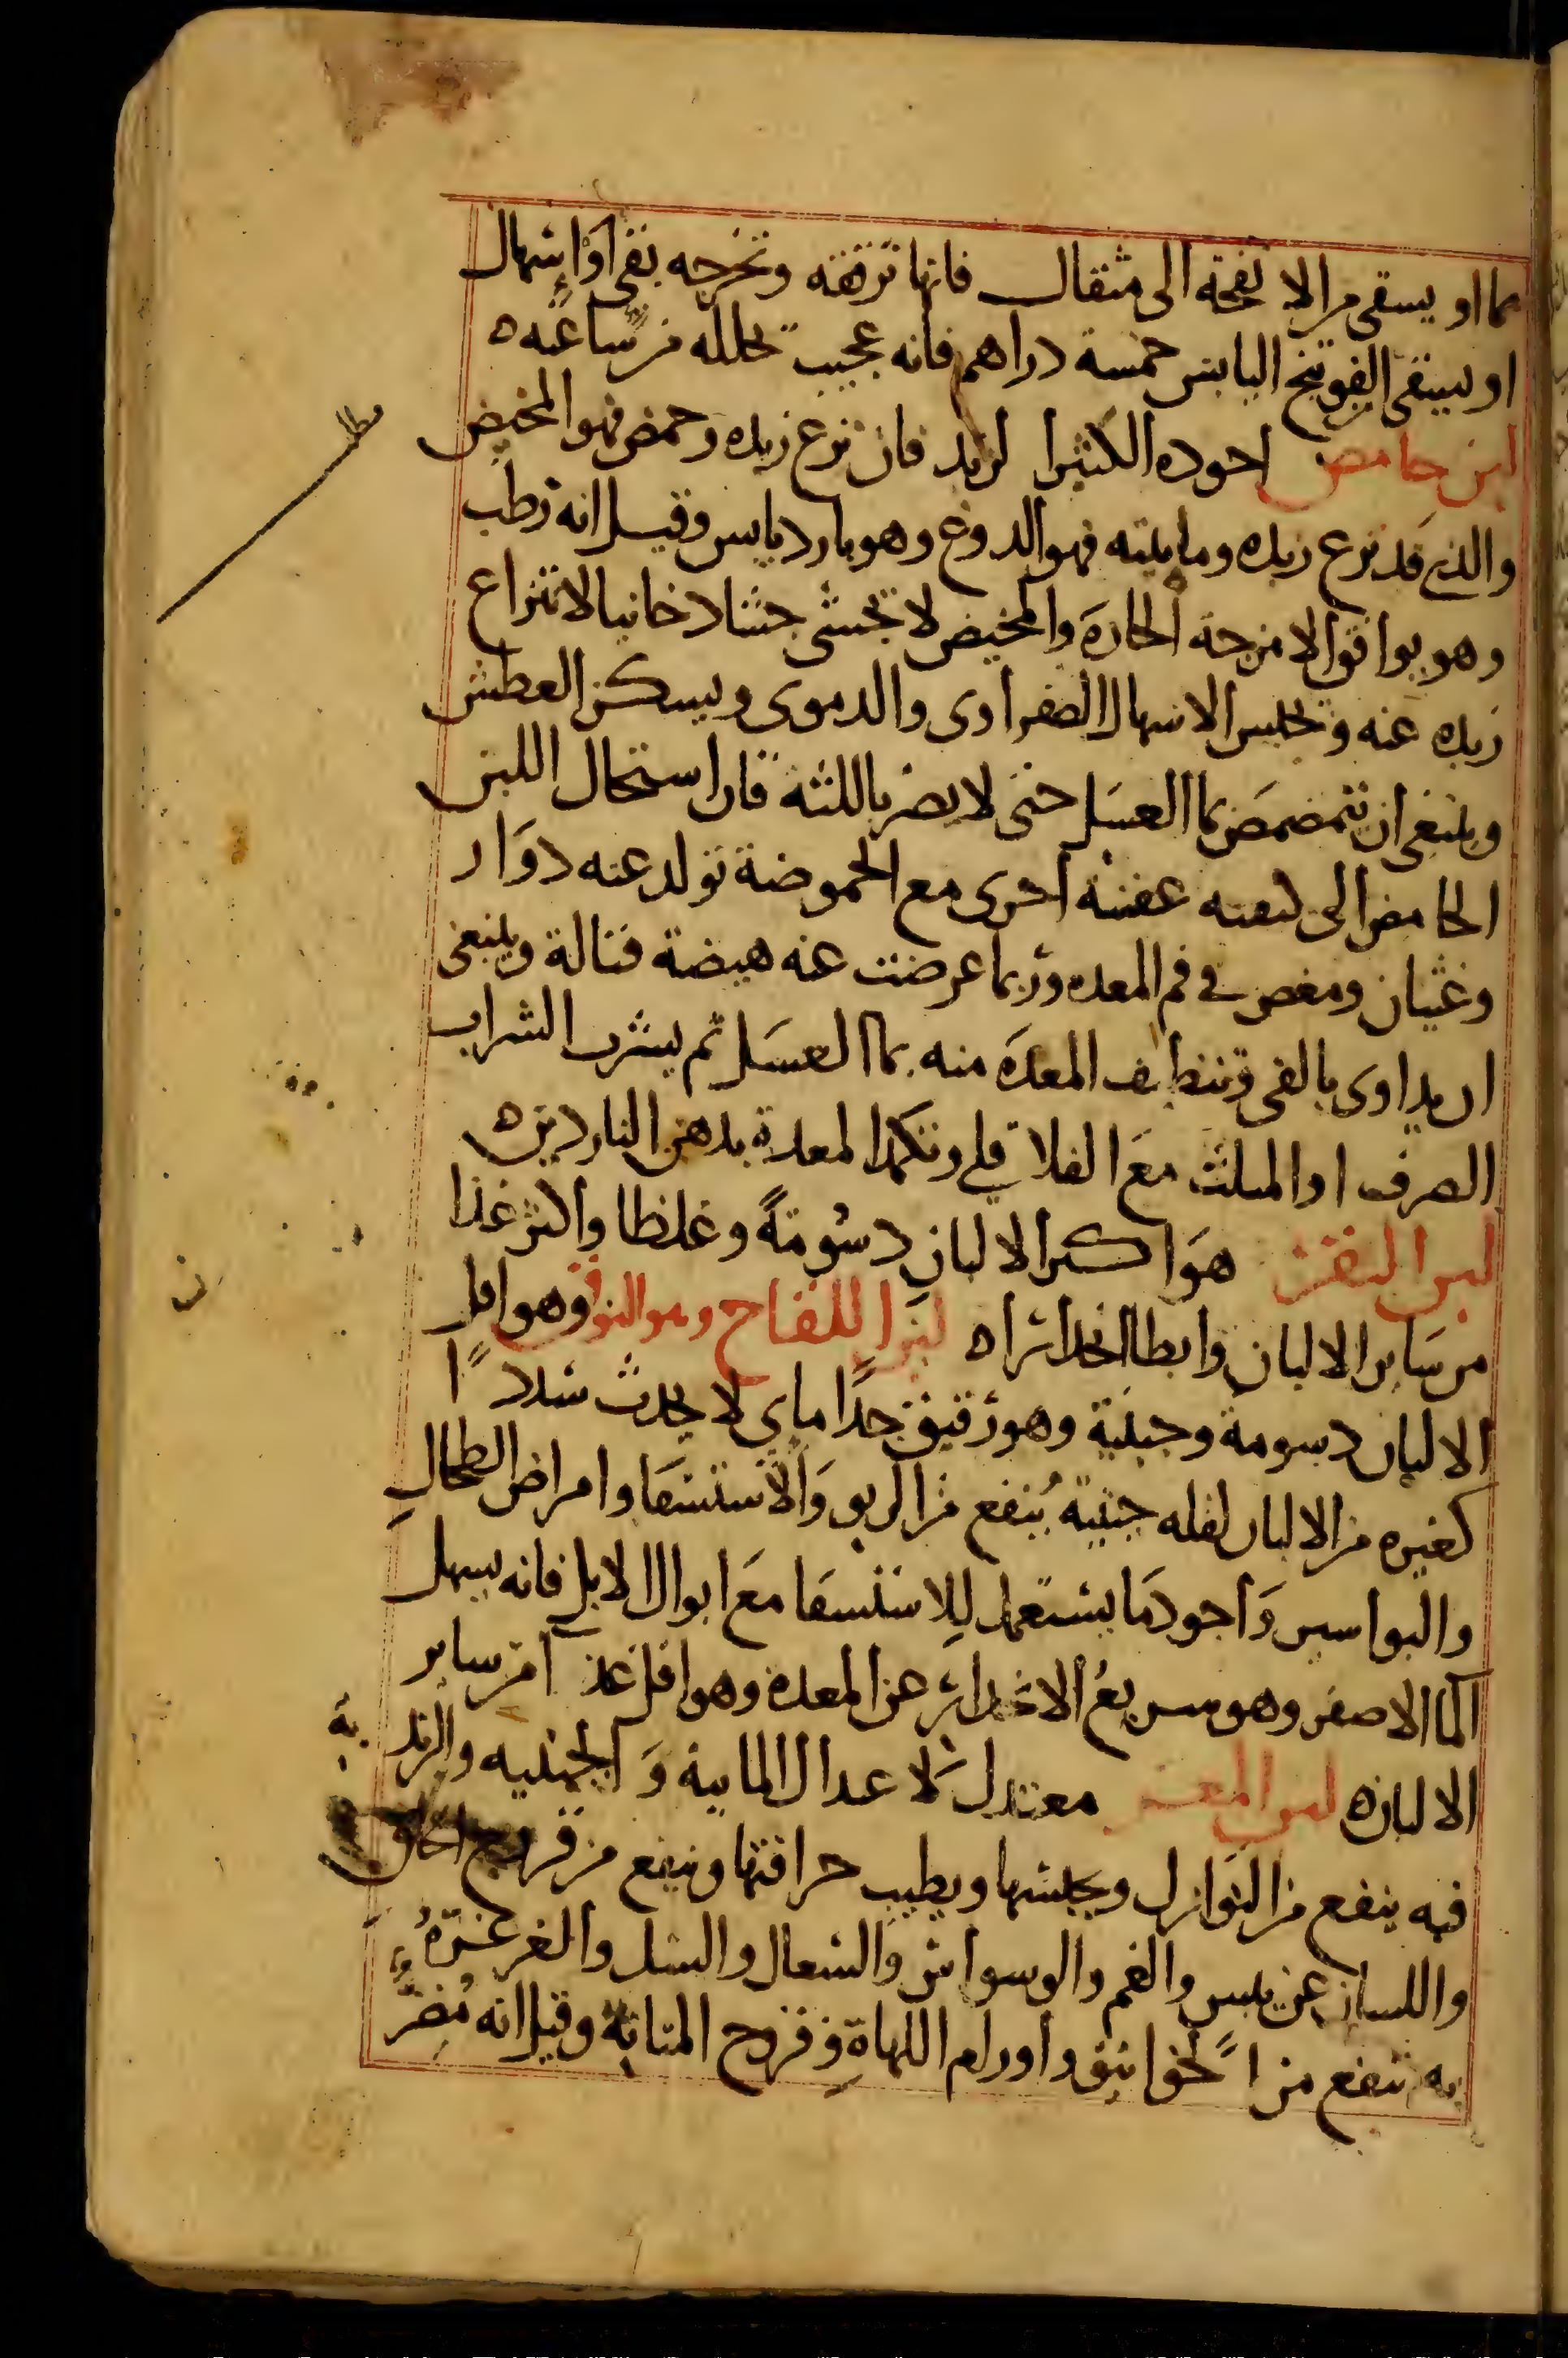 بما او يسقى من الانفحة الى مثقال فانها ترققه وتخرجه بقى او اسهال
او يسقى الفوتنج اليابس خمسة دراهم فانه عجيب تحلله من ساعته ه
لبن حامض اجوده الكثير الزبد فان نزع زبده وحمض فهو المخيض
والذى قد نزع زبده ومايته فهو الدوغ وهو بارد يابس وقيل انه رطب
وهو يوافق الامزجة الحارة والمخيض لا تجشى جشا دخانيا لانتزاع
زبده عنه وتحبس الاسهال الصفراوى والدموى ويسكن العطش
وينبغى ان يتمضمض بما العسل حتى لا يضر باللثة فان استحال اللبن
الحامض الى كيفيه عفنة اخرى مع الحموضة تولد عنه دوار
وغثيان ومغص فى فم المعده وربما عرضت عنه هيضة قتالة وينبغى
ان يداوى بالقى وتنظيف المعدة منه بما العسل ثم يشرب الشراب
الصرف او المثلث مع الفلافلى وتكمد المعدة بدهن الناردين ه
لبن البقر هو اكثر الالبان دسومة وغلظا واكثر غذا
من ساير الالبان وابطا انحدارا ه لبن اللقاح وهو النوق وهو اقل
الالبان دسومة وجبنية وهو رقيق جدا ماى لا يحدث سددا
كغيره من الالبان لقله جبنية ينفع من الربو والاستسقا وامراض الطحال
والبواسير واجود ما يستعمل للاستسقا مع ابوال الابل فانه يسهل
الما الاصفر وهو سريع الانحدار عن المعدة وهو اقل غذا من ساير
الالبان ه لبن المعز معتدل لاعتدال المايية والجبنيه والزبدية
فيه ينفع من النوازل ويحبسها ويطيب حرافتها وينفع من قروح الحلق
واللسان عن يبس والغم والوسواس والسعال والسل والغرغرة
به تنفع من الخوانيق واورام اللهاة وقروح المثانة وقيل انه مضر